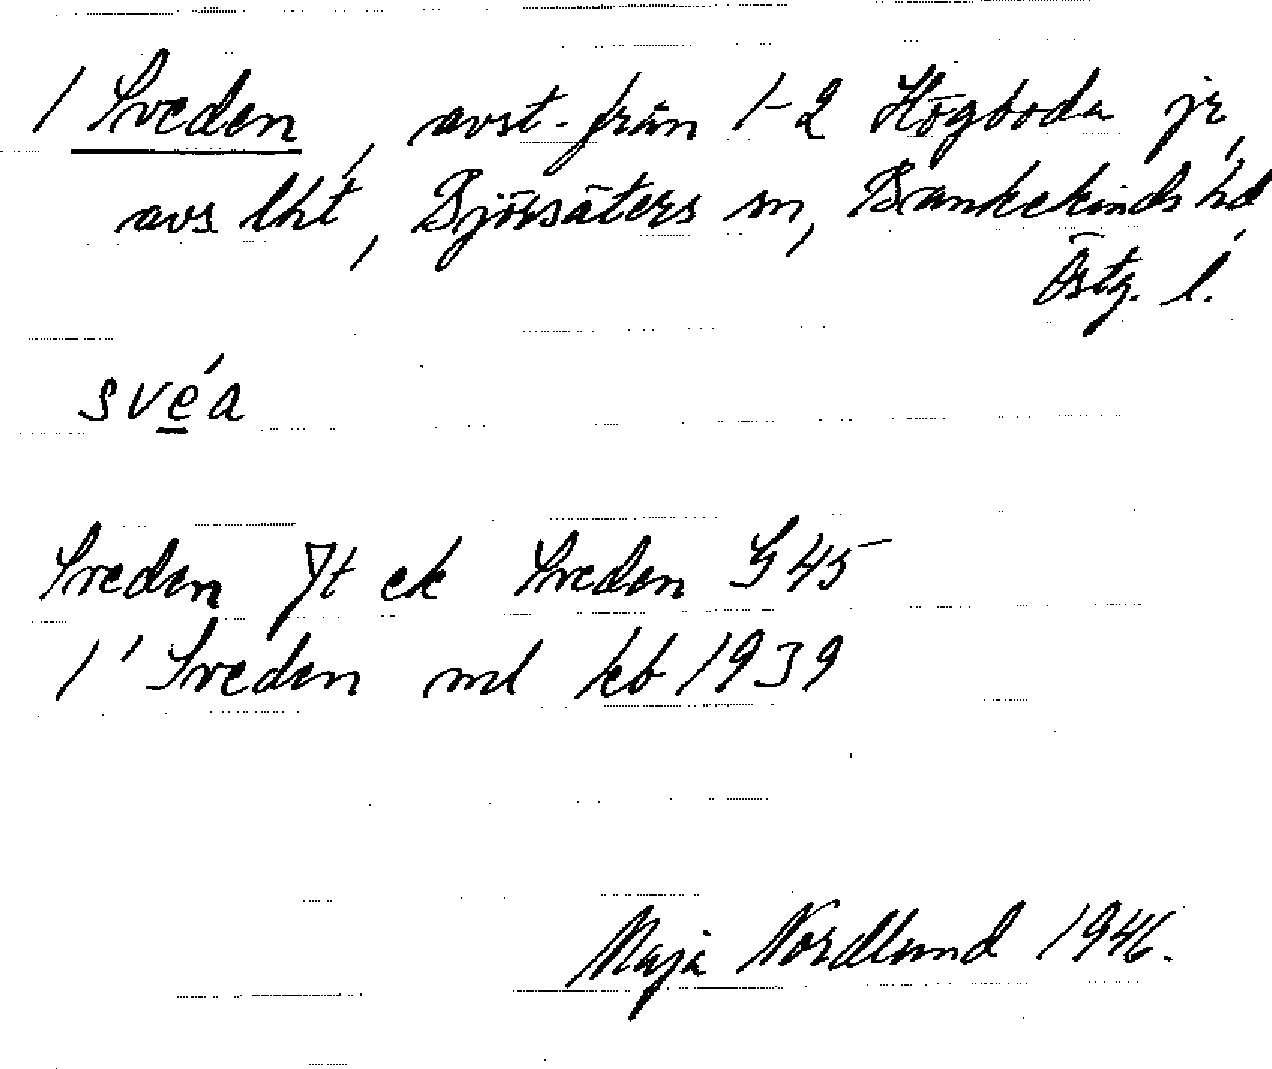 1 Sveden, avst. från 1-2 Högboda jr,
avs lht, Björsäters sn, Bankekinds hd
Östg. l.
svéa
Sveden Jt ek Sveden G 45
1' Sveden ml kb 1939
Maja Nordlund 1946.